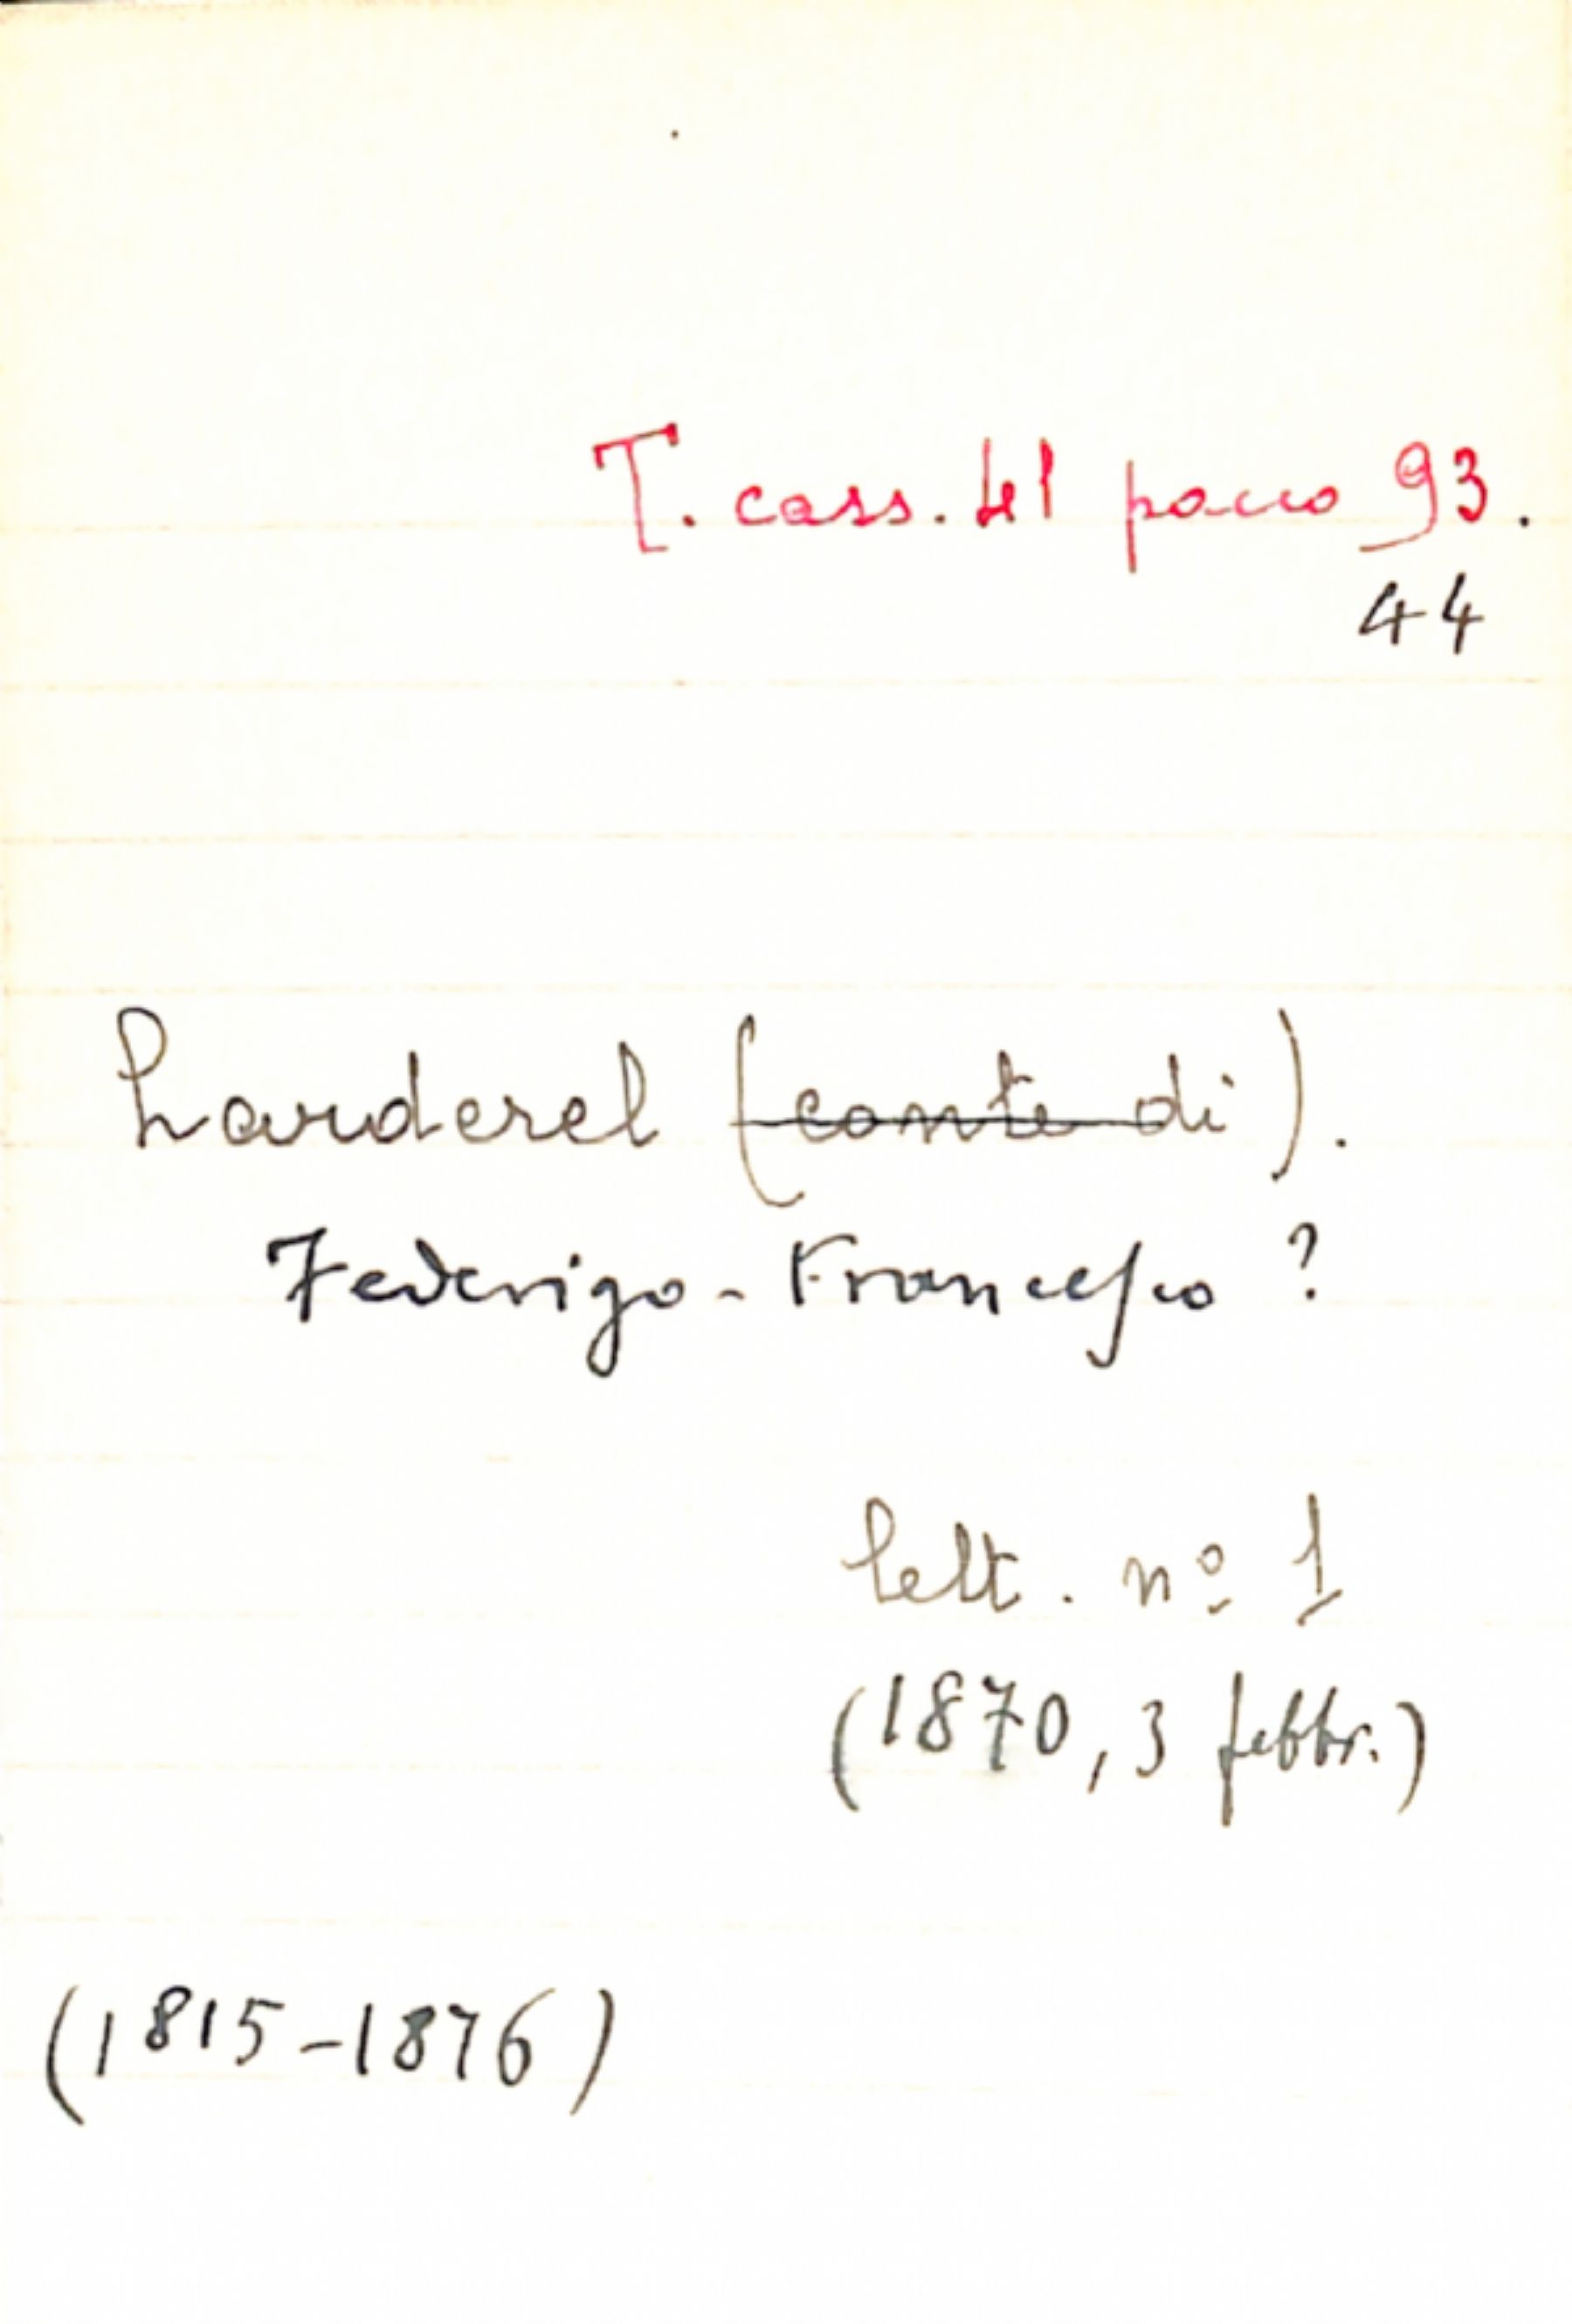 T. cass. 41 pacco 93.
44
Larderel (conte di).
Federigo - Francesco ?
lett. nº 1
(1870, 3 febbr.)
(1815-1876)